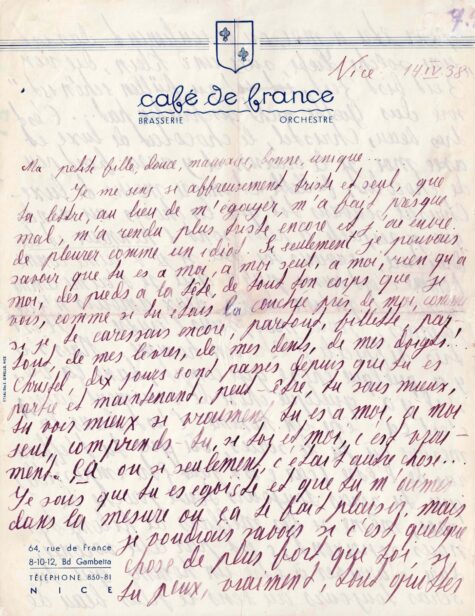 7.
Nice 14 IV 38
café de france
BRASSERIE ORCHESTRE
Ma petite fille, douce, mauvaise, bonne, unique...
Je me sens si affreusement triste et seul, que
ta lettre au lieu de m'égayer, m'a fait presque
mal, m'a rendu plus triste encore et j'ai envie
de pleurer comme un idiot. Si seulement je pouvais
savoir que tu es a moi, a moi seul, a moi, rien qu'a
moi, des pieds a la tête, de tout ton corps que je
vois, comme si tu étais la couchée près de moi, comme
si je te caressais encore, partout, fillette, par-
tout, de mes levres, de mes dents, de mes doigts!
Christel, dix jours sont passés depuis que tu es
partie et maintenant, peut-être, tu sais mieux,
tu vois mieux si vraiment tu es a moi, a moi
seul, comprends-tu, si toi et moi, c'est vrai-
ment ÇA ou si seulement, c'était autre chose...
Je sais que tu es egoiste et que tu m'aimes
dans la mesure ou ça te fait plaisir, mais
je voudrais savoir si c'est quelque
chose de plus fort que toi, si
tu peux, vraiment, tout quitter
64, rue de France
8-10-12, Bd Gambetta
TÉLÉPHONE 850-81
NICE